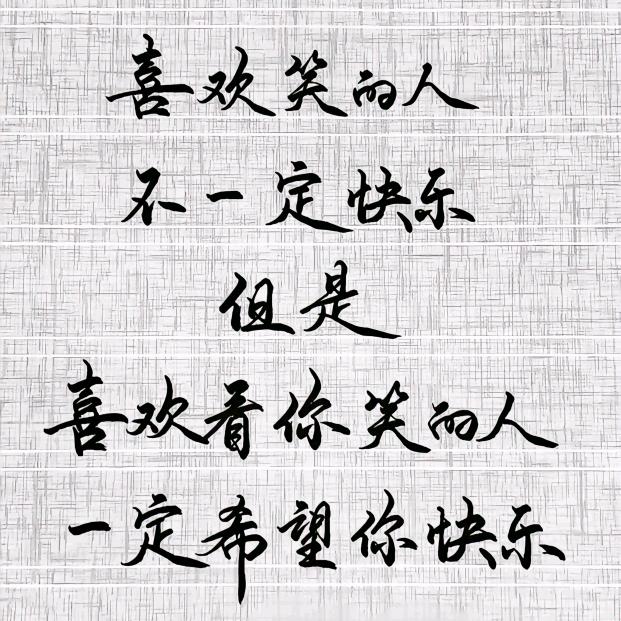 喜欢笑的人
不一定快乐
但是
喜欢看你笑的人
一定希望你快乐